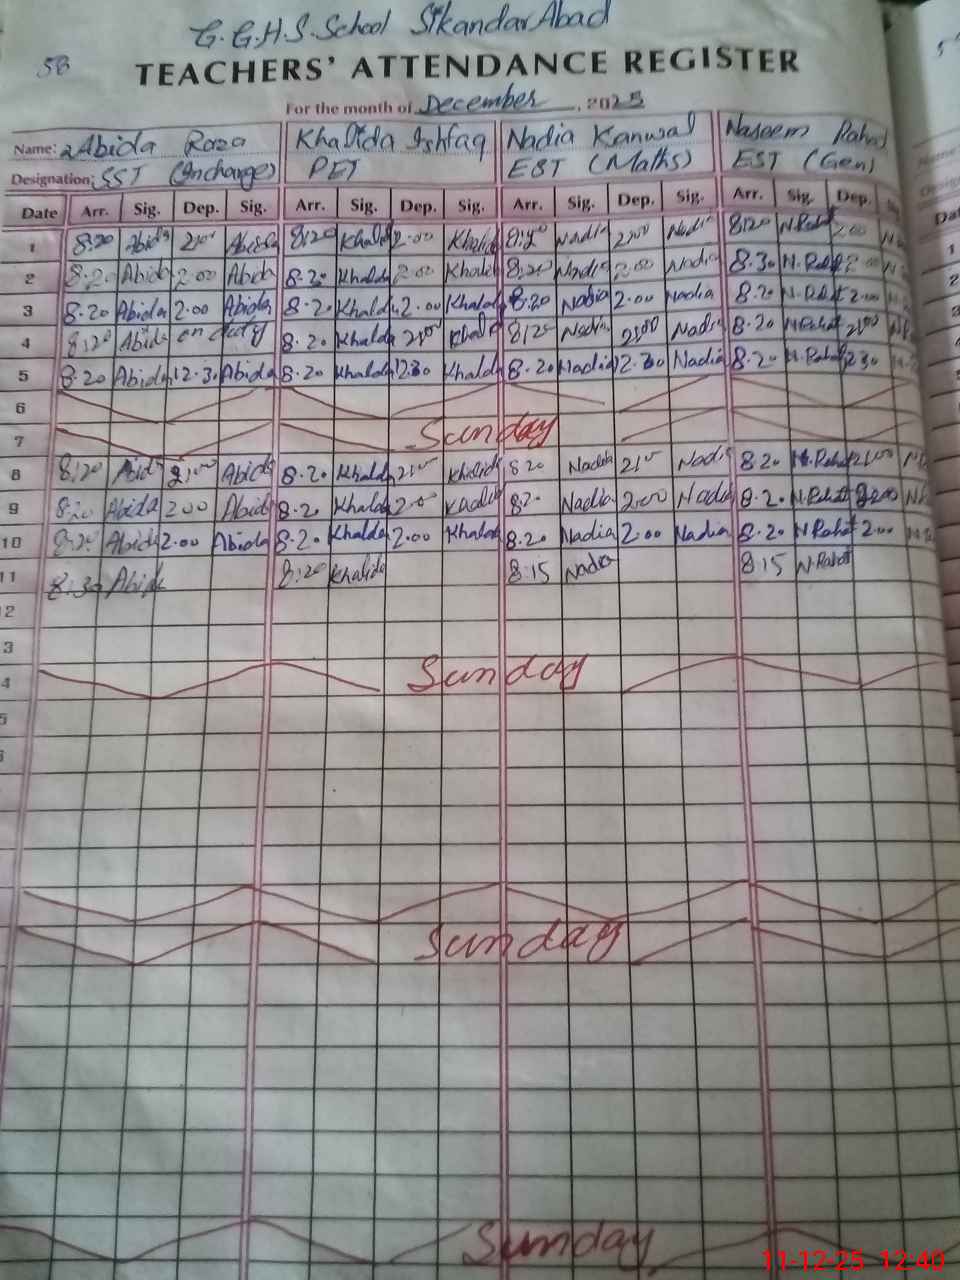 G.G.H.S. School Sikandar Abad
58
TEACHERS' ATTENDANCE REGISTER
For the month of December, 2025
Name: Abida Roza Khalida Ishfaq Nadia Kanwal Naseem
Designation: SST (Incharge) PET EST (Maths) EST (Gen)
Date Arr. Sig. Dep. Sig. Arr. Sig. Dep. Sig. Arr. Sig. Dep. Sig. Arr. Sig. Dep.
1 8:20 Abida 2:00 Abida 8:20 Khalid 2:00 Khalid 8:20 Nadia 2:00 Nadia 8:20 N.Rahat 2:00
2 8.20 Abida 2.00 Abida 8.20 Khalda 2.00 Khalda 8:20 Nadia 2.00 Nadia 8.30 N.Rahat 2.00
3 8.20 Abida 2.00 Abida 8.20 Khalda 2.00 Khalda 8.20 Nadia 2.00 Nadia 8.20 N.Rahat 2.00
4 8:20 Abida on duty 8.20 Khalda 2:00 Khalda 8:20 Nadia 2:00 Nadia 8.20 N.Rahat 2:00
5 8.20 Abida 12.30 Abida 8.20 Khalda 12.30 Khalda 8.20 Nadia 12.30 Nadia 8.20 N.Rahat 12.30
6
7 Sunday
8 8:20 Abida 2:00 Abida 8.20 Khalda 2:00 Khalida 8.20 Nadia 2:00 Nadia 8.20 N.Rahat 2:00
9 8:20 Abida 2.00 Abida 8.20 Khalda 2.00 8.20 Nadia 2.00 Nadia 8.20 N.Rahat 2:00
10 8:20 Abida 2.00 Abida 8.20 Khalda 2.00 Khalda 8.20 Nadia 2.00 Nadia 8.20 N.Rahat 2.00
11 8:30 Abida 8:20 Khalida 8:15 Nadia 8:15 N.Rahat
2
3
4 Sunday
5
Sunday
Sunday
11-12-25 12:40